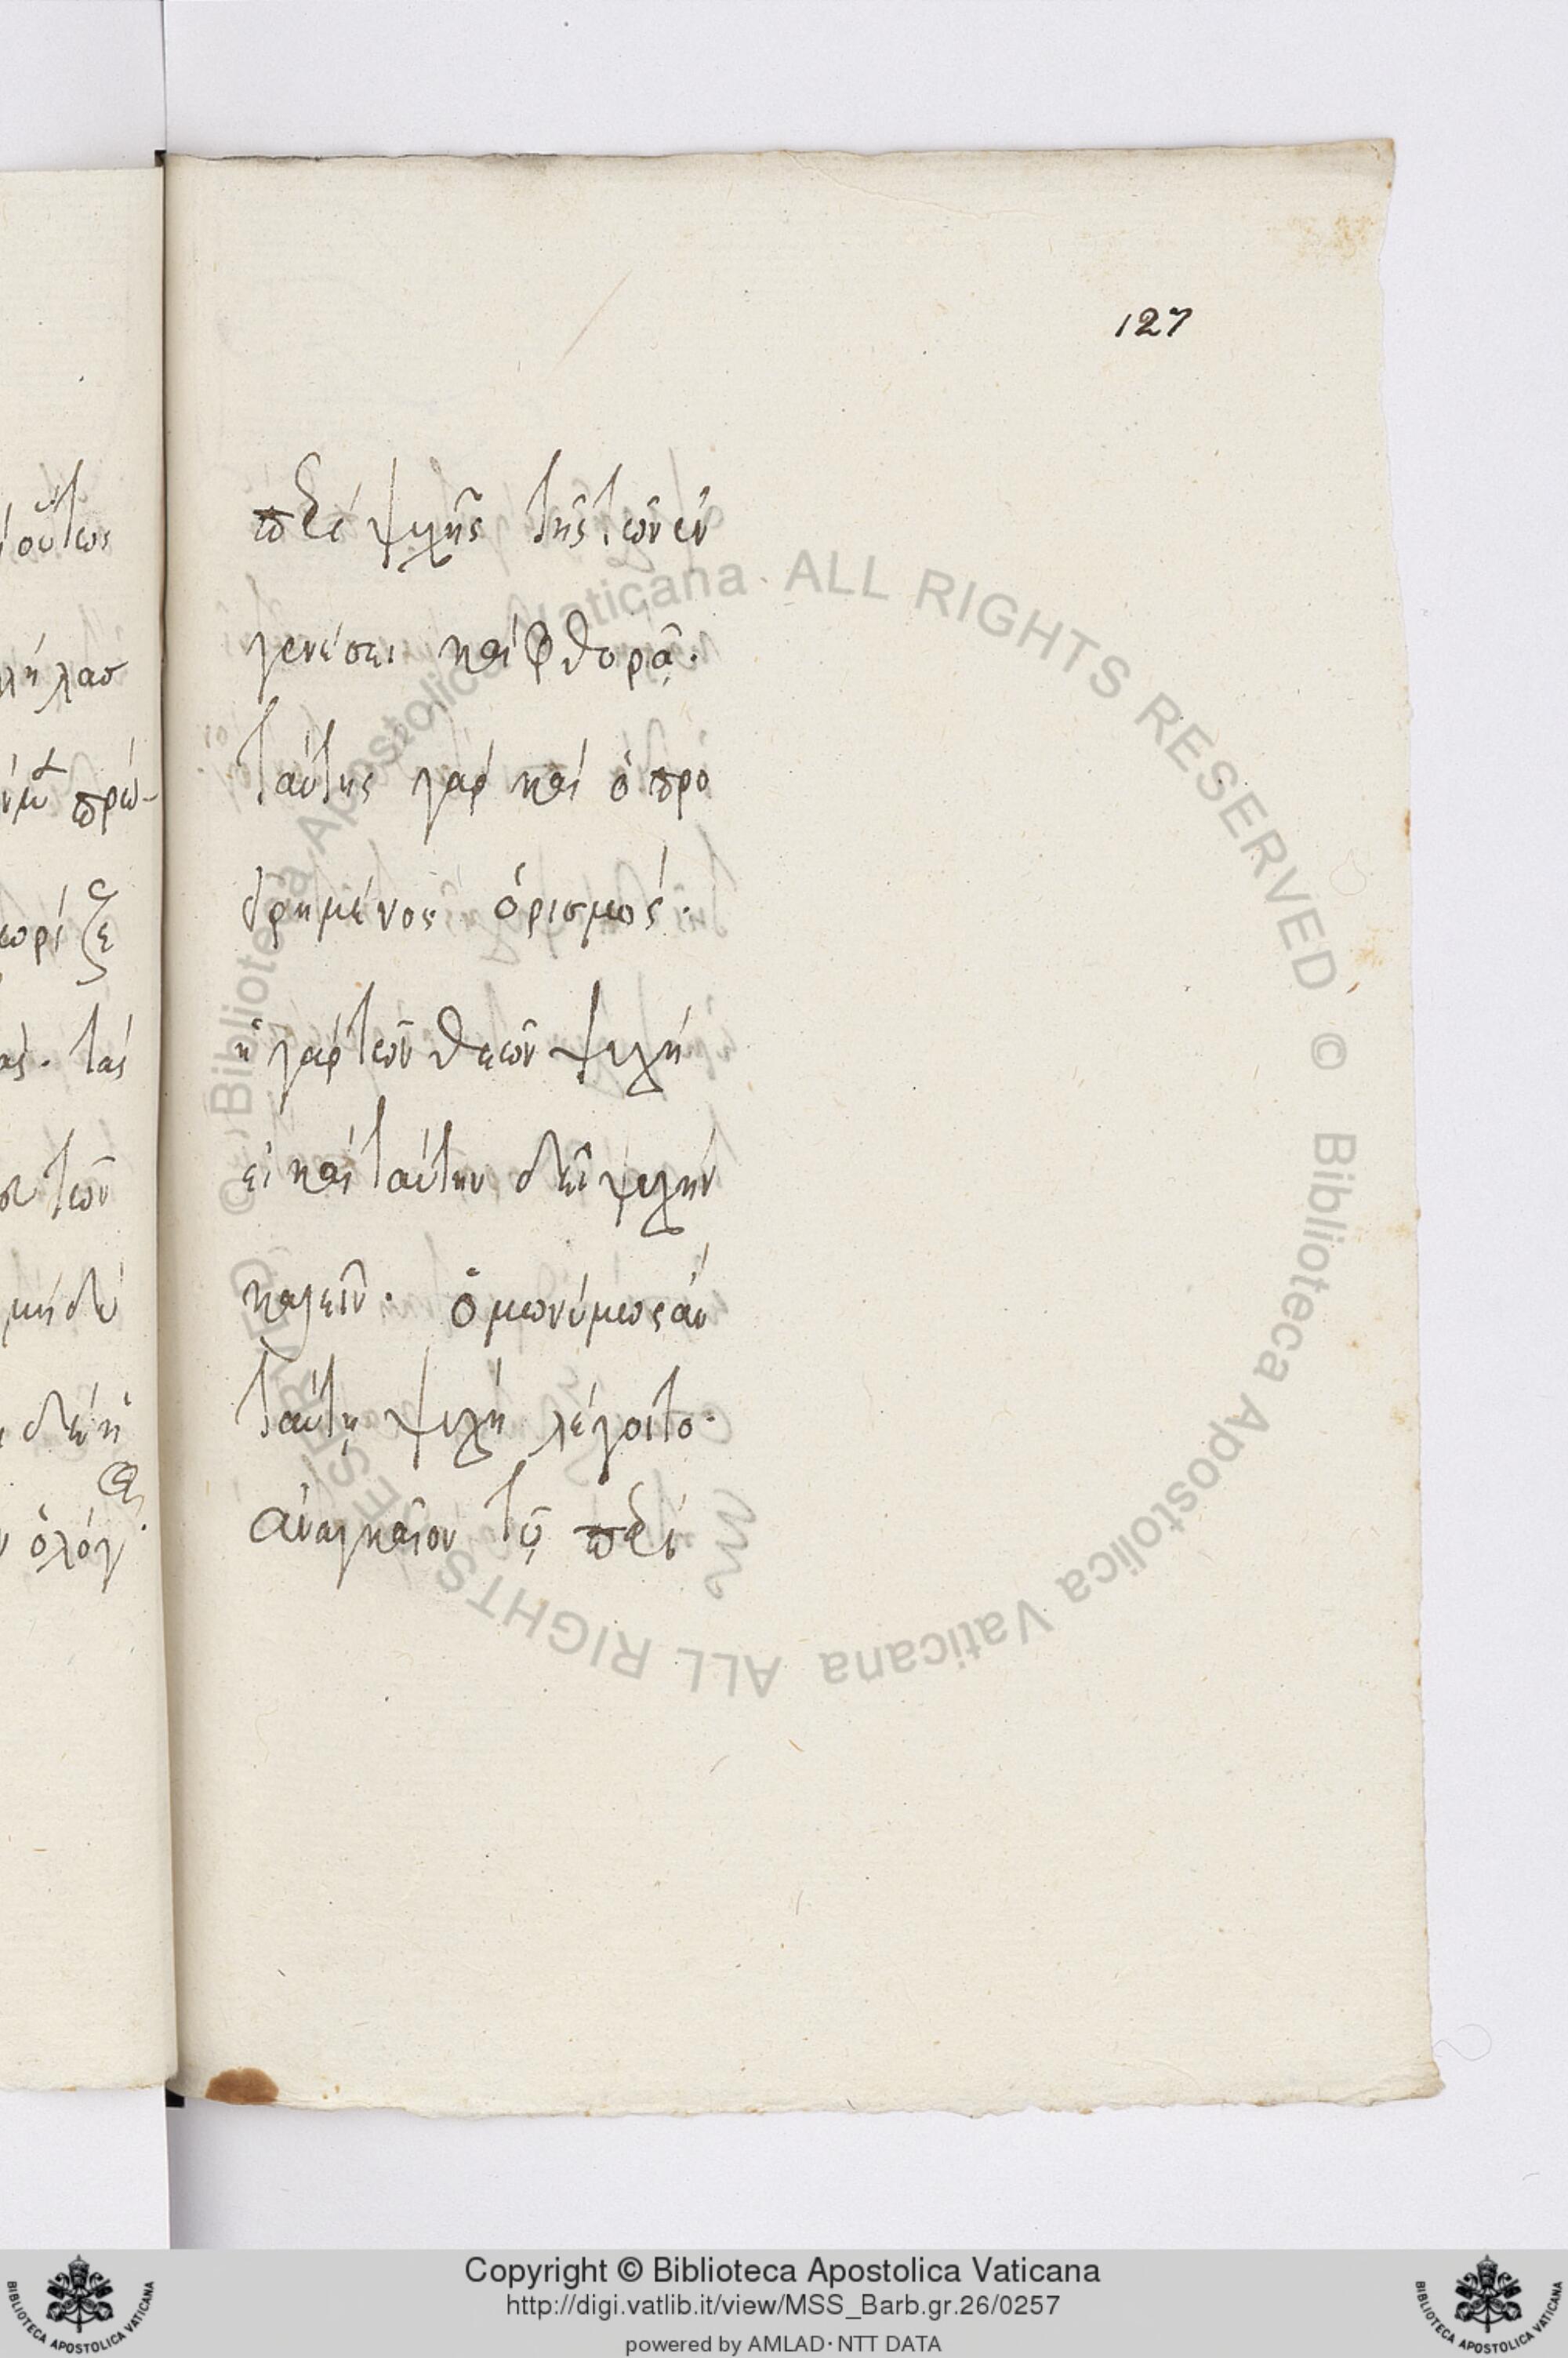 127
περὶ ψυχῆς τῆς τῶν ἐν
γενέσει καὶ φθορᾷ.
ταύτης γὰρ καὶ ὁ προ
ειρημένος ὁρισμός.
ἡ γὰρ τῶν θεῶν ψυχὴ
εἰ καὶ ταύτην δεῖ ψυχὴν
καλεῖν. ὁμωνύμως ἂν
ταύτῃ ψυχὴ λέγοιτο.
ἀναγκαῖον τῷ περὶ
οὕτως
πρώ-
τὰς
τῶν
μὴ δὲ
Copyright © Biblioteca Apostolica Vaticana
http://digi.vatlib.it/view/MSS_Barb.gr.26/0257
powered by AMLAD · NTT DATA
© Biblioteca Apostolica Vaticana ALL RIGHTS RESERVED © Biblioteca Apostolica Vaticana ALL RIGHTS RESERVED
BIBLIOTECA APOSTOLICA VATICANA
BIBLIOTECA APOSTOLICA VATICANA